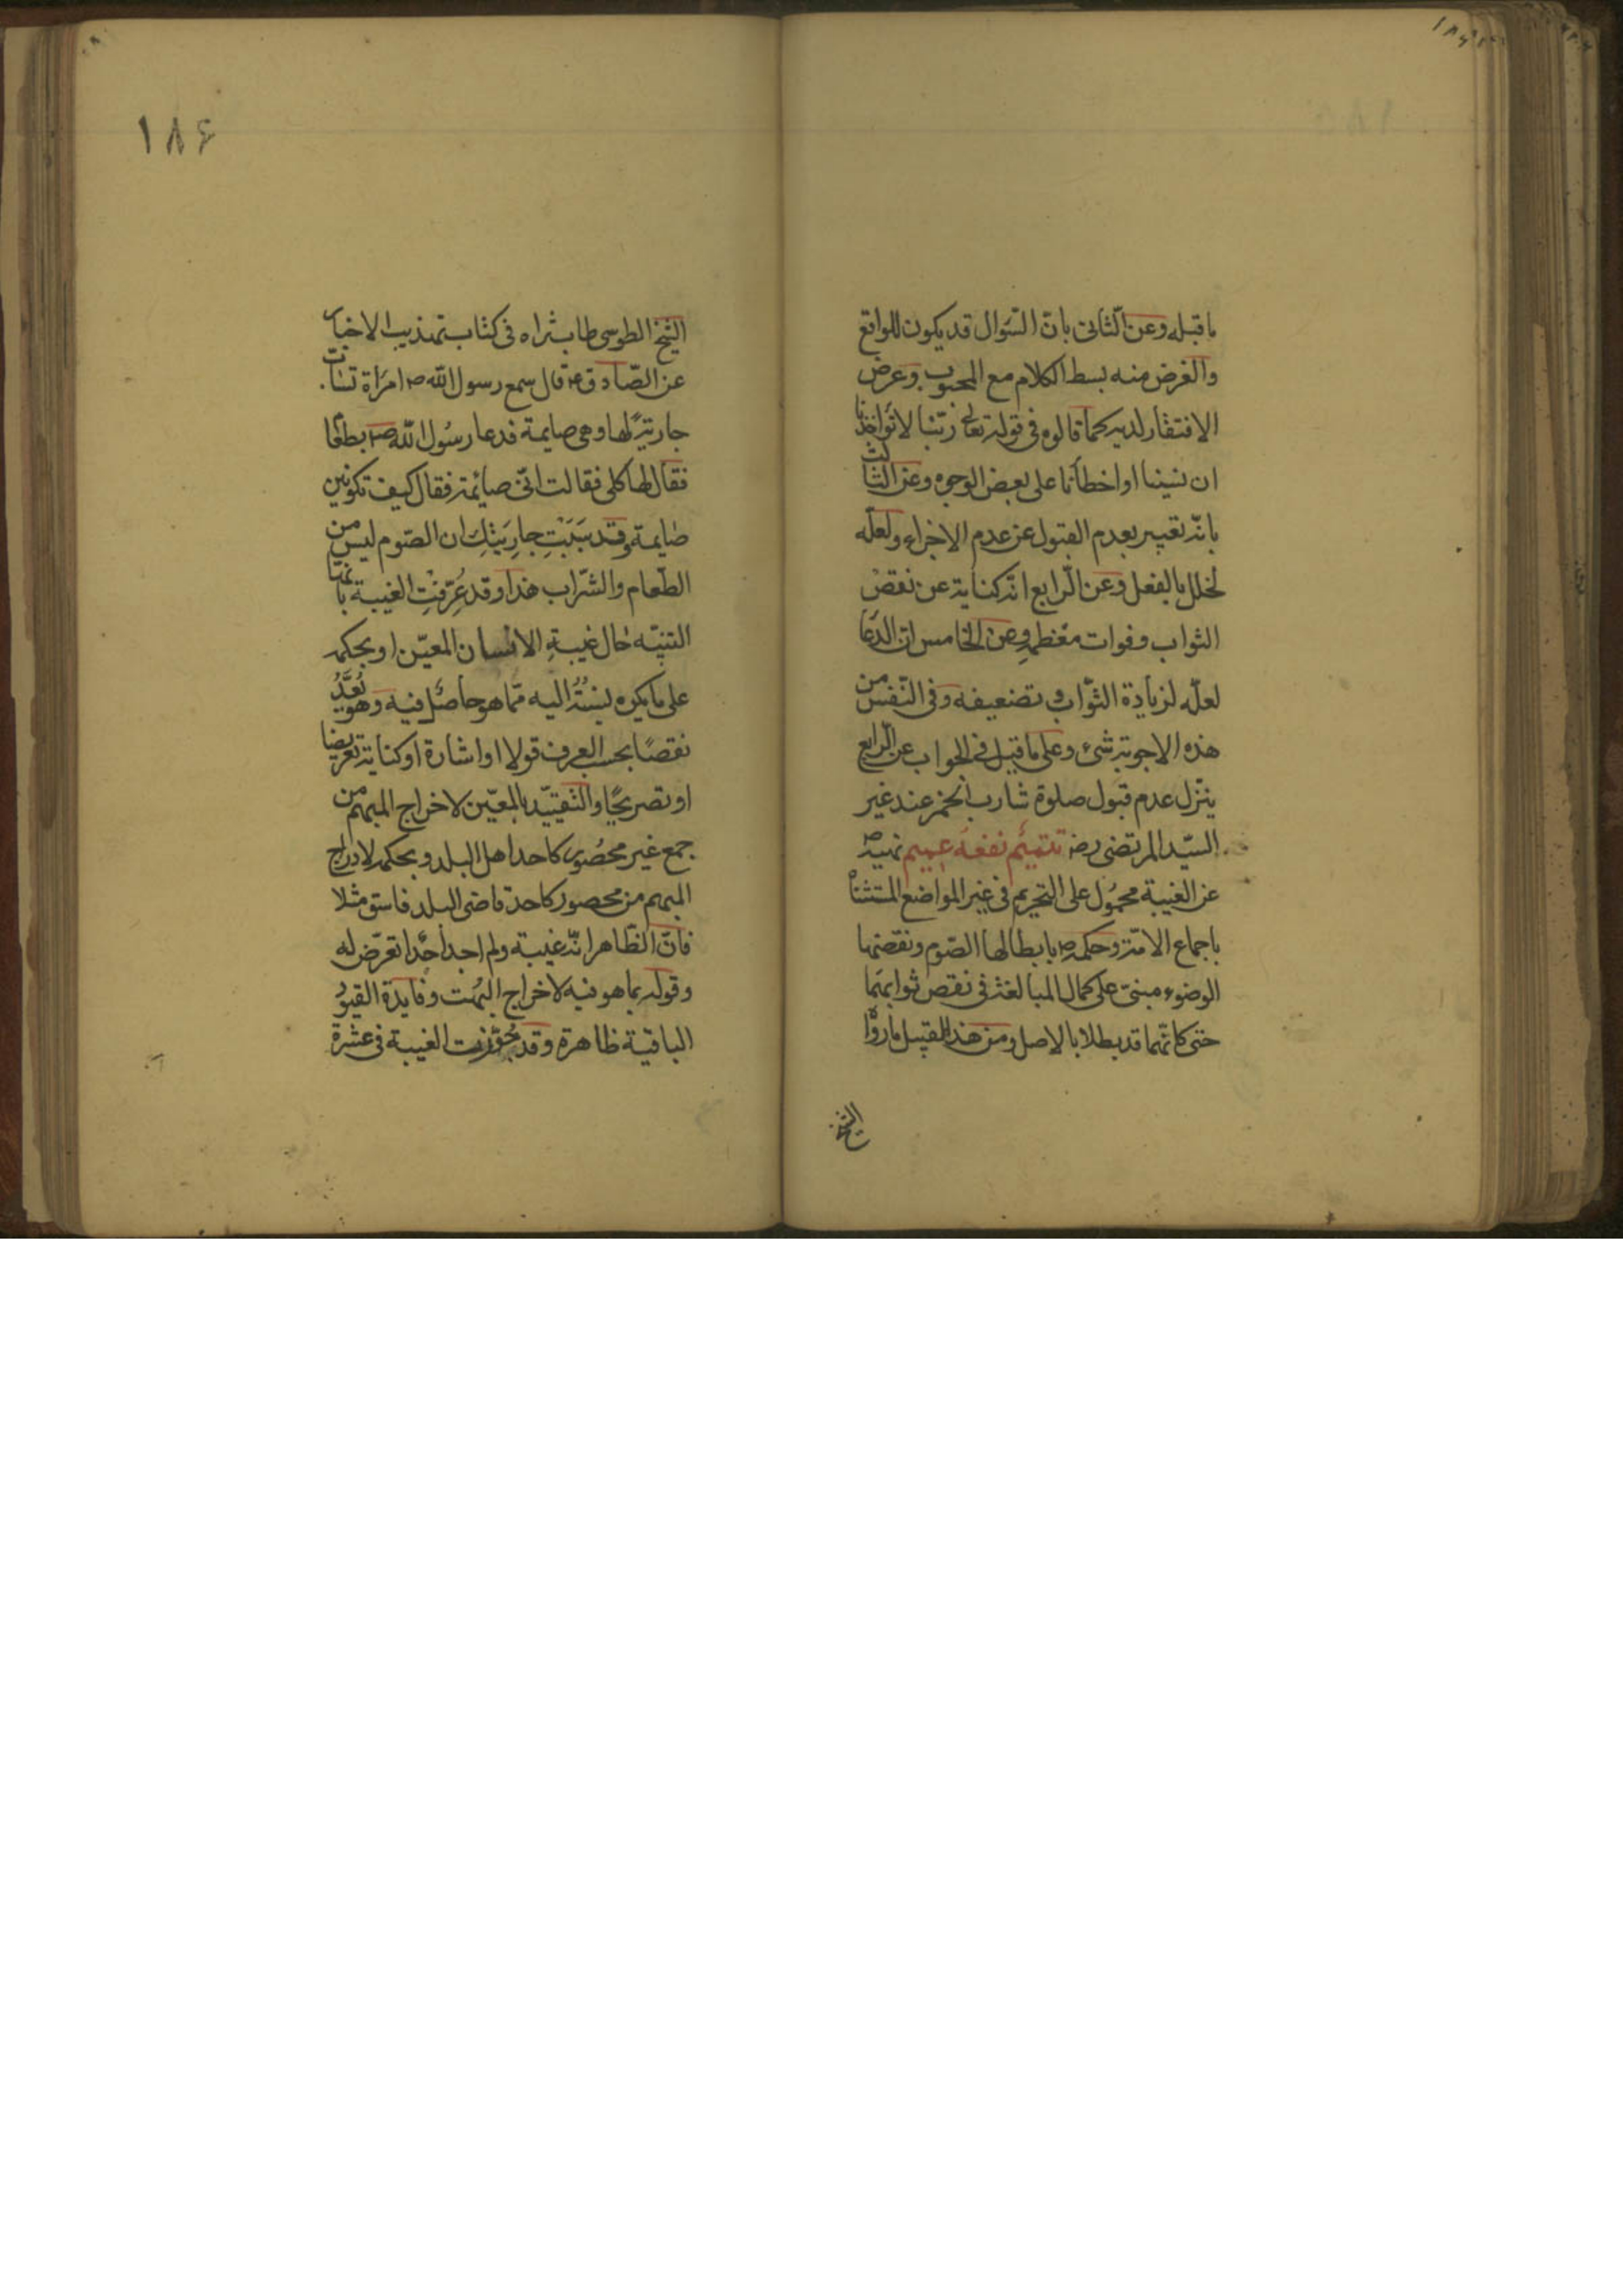 ما قبله وعن الثانى بانّ السّؤال قد يكون للواقع
والغرض منه بسط الكلام مع المحبوب وعرض
الافتقار لديه كما قالوه فى قوله تعالى ربّنا لا تؤاخذنا
ان نسينا او اخطأنا على بعض الوجوه وعن الثالث
بانّه تعبير بعدم القبول عن عدم الاجزاء ولعلّه
لخلل بالفعل وعن الرابع انّه كناية عن نقص
الثواب وفوات معظمه وعن الخامس انّ الدّعا
لعلّه لزيادة الثّواب و تضعيفه وفى النّفس من
هذه الاجوبة شىء وعلى ما قيل فى الجواب عن الرّابع
ينزّل عدم قبول صلوة شارب الخمر عند غير
السيّد المرتضى رضه تتميم نفعه عميم نهيه ص
عن الغيبة محمول على التحريم فى غير المواضع المستثناة
باجماع الامّة وحكمه ص بابطالها الصّوم ونقضها
الوضوء مبنىّ على كمال المبالغة فى نقص ثوابهما
حتى كانّهما قد بطلا بالاصل ومن هذا القبيل ما رواه
الشيخ
۱۸۶
الشيخ الطوسى طاب ثراه فى كتاب تهذيب الاخبار
عن الصّادق ع قال سمع رسول الله ص امرأة تسابّ
جارية لها وهى صايمة فدعا رسول الله ص بطعام
فقال لها كلى فقالت انّى صائمة فقال كيف تكونين
صايمة وقد سببت جاريتك ان الصّوم ليس من
الطّعام والشّراب هذا وقد عُرّفت الغيبة بانّها
التنبيه حال غيبة الانسان المعيّن او بحكمه
على ما يكره نسبته اليه ممّا هو حاصل فيه وهو يُعدّ
نقصًا بحسب العرف قولا او اشارة او كناية تعريضا
او تصريحًا والتقييد بالمعيّن لاخراج المبهم من
جمع غير محصور كاحد اهل البلد وبحكمه لادراج
المبهم من محصور كاحد قاضى البلد فاسق مثلا
فانّ الظّاهر انّه غيبة ولم اجد احدا تعرّض له
وقوله بما هو فيه لاخراج البهت وفايدة القيود
الباقية ظاهرة وقد جُوّزت الغيبة فى عشرة